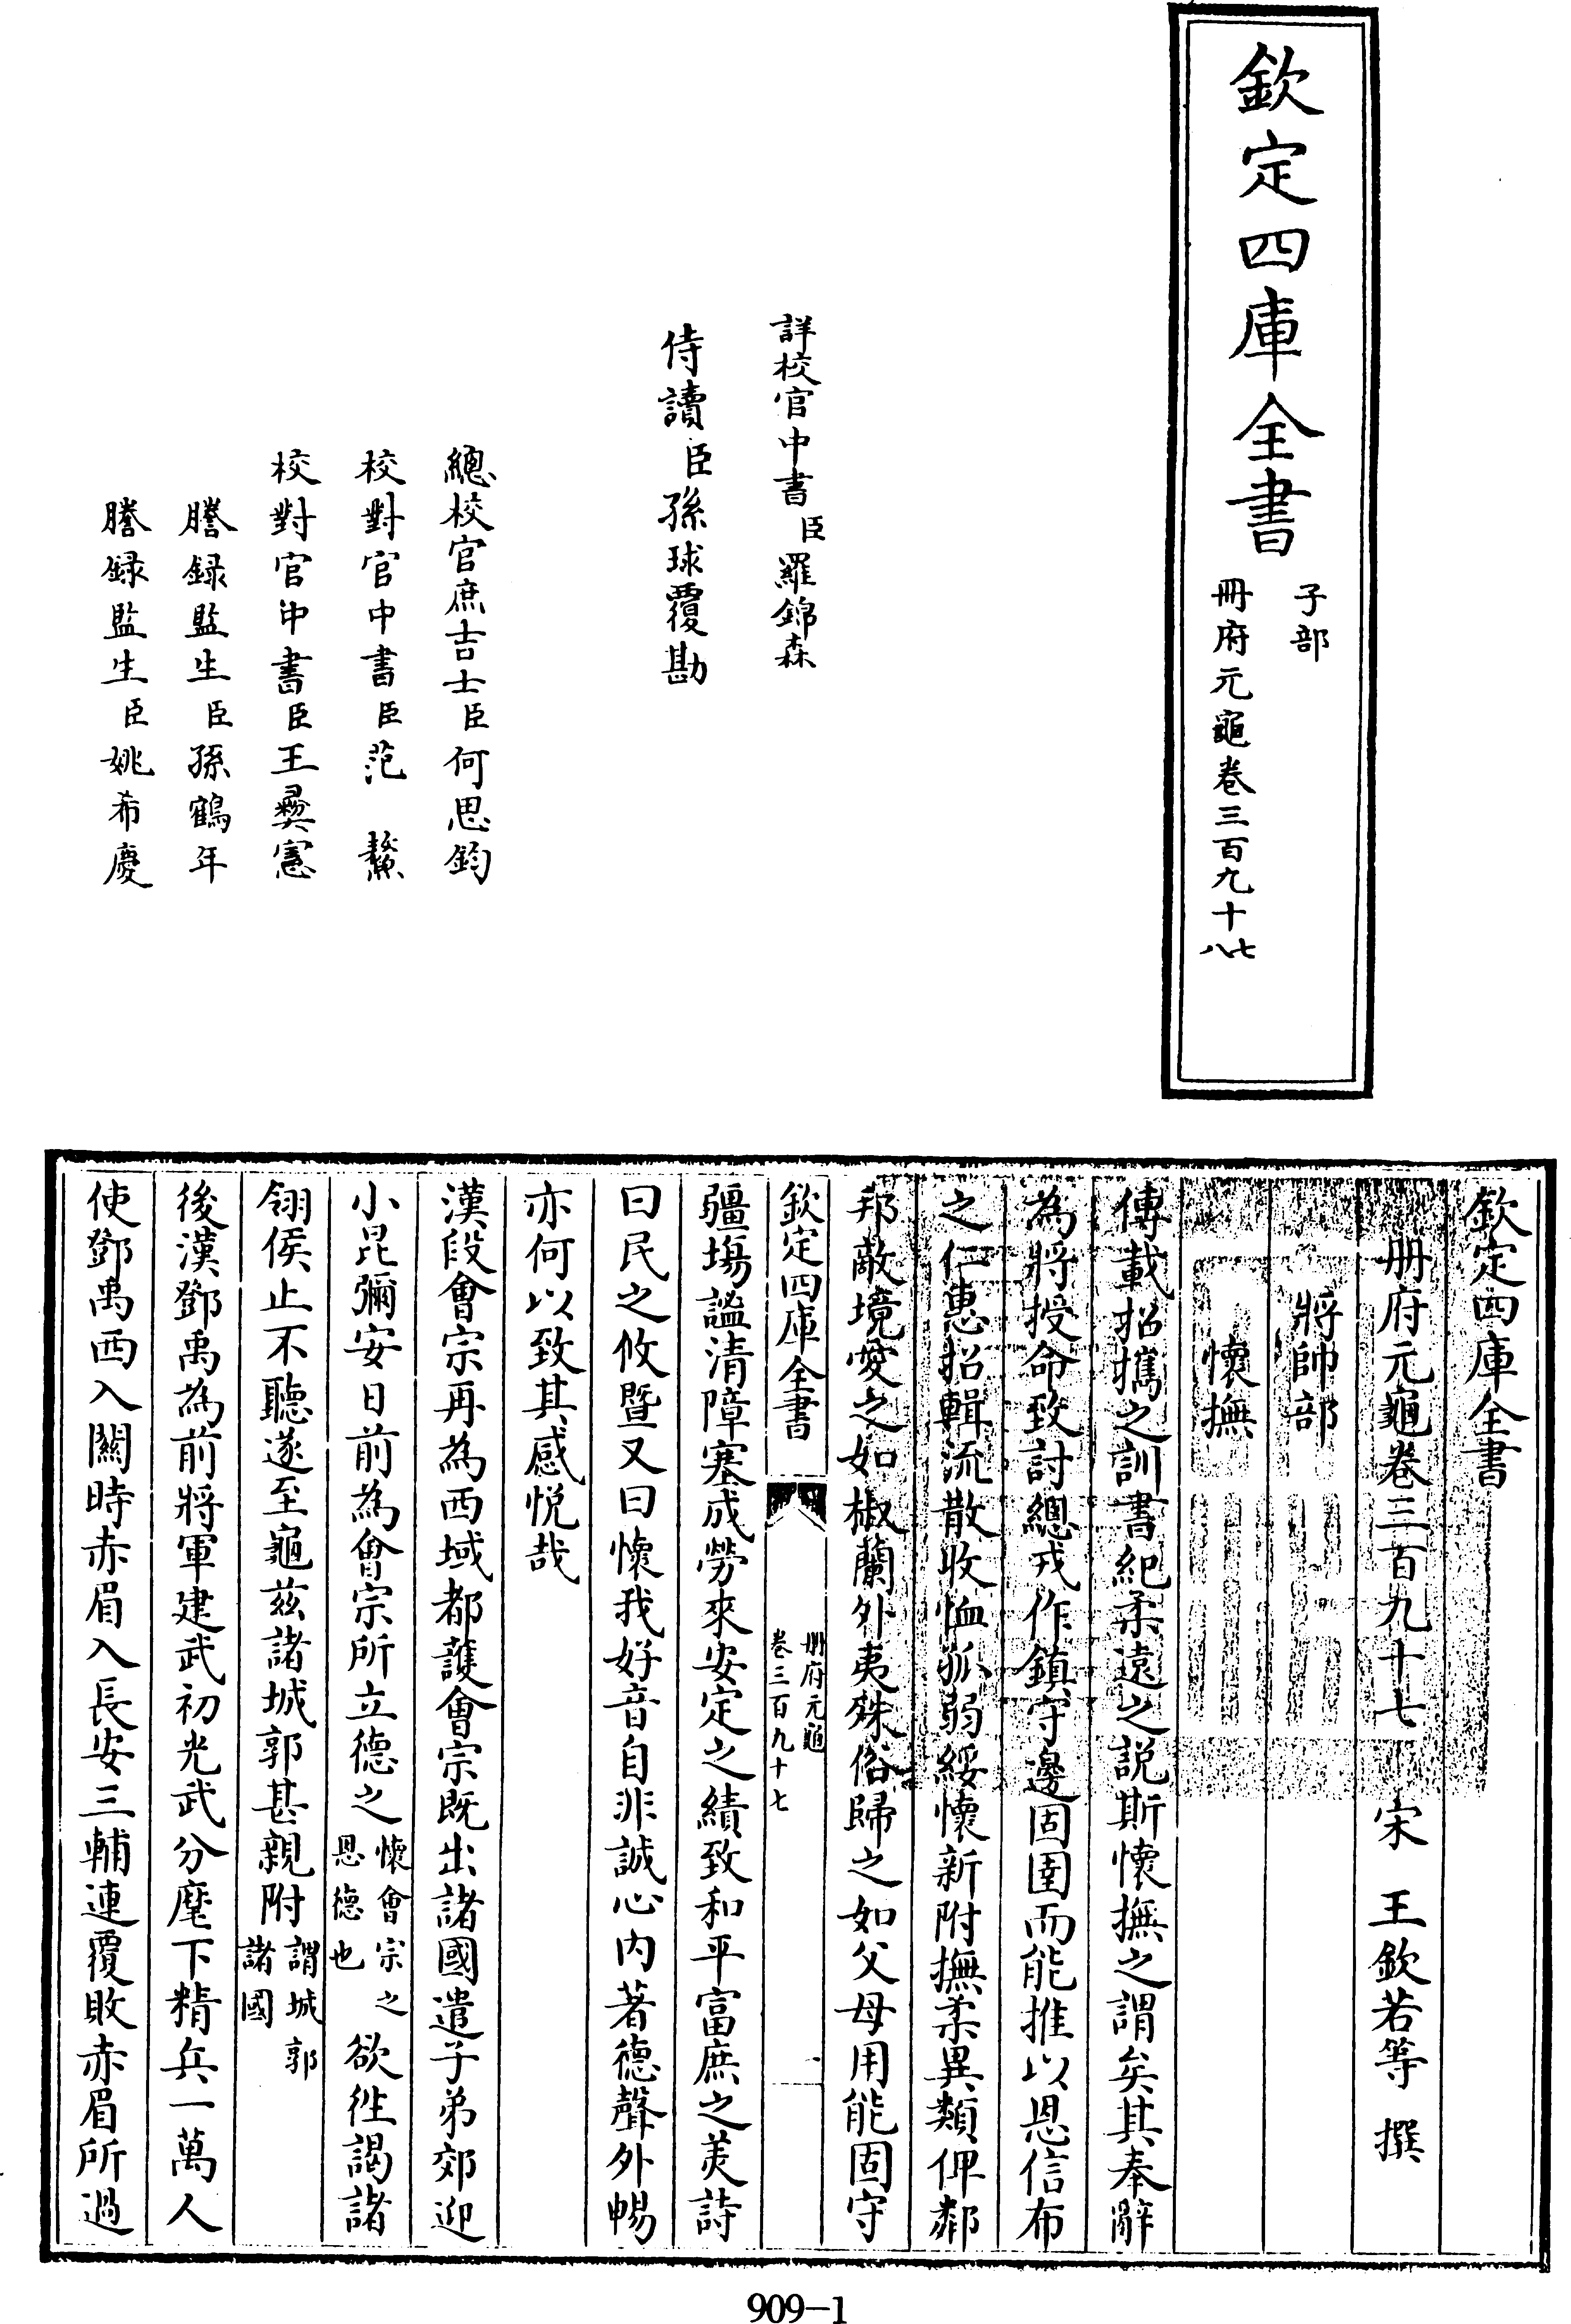 欽定四庫全書
子部
冊府元龜卷三百九十七八
詳校官中書臣羅錦森
侍讀臣孫球覆勘
總校官庶吉士臣何思鈞
校對官中書臣范鏊
校對官中書臣王彝憲
謄録監生臣孫鶴年
謄録監生臣姚希慶
欽定四庫全書
冊府元龜卷三百九十七 宋 王欽若等 撰
將帥部
懷撫
傳載招攜之訓書紀柔遠之説斯懷撫之謂矣其奉辭
為將授命致討總戎作鎮守邊固圉而能推以恩信布
之仁惠招輯流散收恤孤弱綏懷新附撫柔異類俾鄰
邦敵境愛之如椒蘭外夷殊俗歸之如父母用能固守
欽定四庫全書
冊府元龜
卷三百九十七
疆埸謐清障塞成勞來安定之績致和平富庶之美詩
曰民之攸暨又曰懷我好音自非誠心内著德聲外暢
亦何以致其感悦哉
漢段會宗再為西域都護會宗既出諸國遣子弟郊迎
小昆彌安日前為會宗所立德之懷會宗之恩德也欲往謁諸
翎侯止不聽遂至龜兹諸城郭甚親附謂城郭諸國
後漢鄧禹為前將軍建武初光武分麾下精兵一萬人
使鄧禹西入關時赤眉入長安三輔連覆敗赤眉所過
909-1